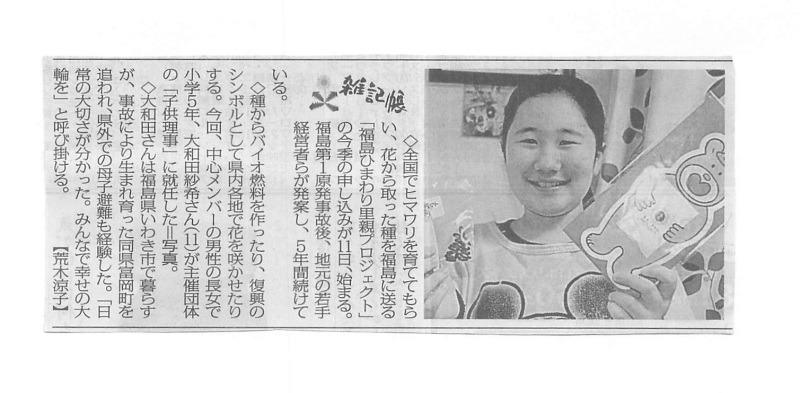 雑記帳
◇全国でヒマワリを育ててもら
い、花から取った種を福島に送る
「福島ひまわり里親プロジェクト」
の今季の申し込みが11日、始まる。
福島第1原発事故後、地元の若手
経営者らが発案し、5年間続けて
いる。
◇種からバイオ燃料を作ったり、復興の
シンボルとして県内各地で花を咲かせたり
する。今回、中心メンバーの男性の長女で
小学5年、大和田紗希さん(11)が主催団体
の「子供理事」に就任した=写真。
◇大和田さんは福島県いわき市で暮らす
が、事故により生まれ育った同県富岡町を
追われ、県外での母子避難も経験した。「日
常の大切さが分かった。みんなで幸せの大
輪を」と呼び掛ける。 【荒木涼子】